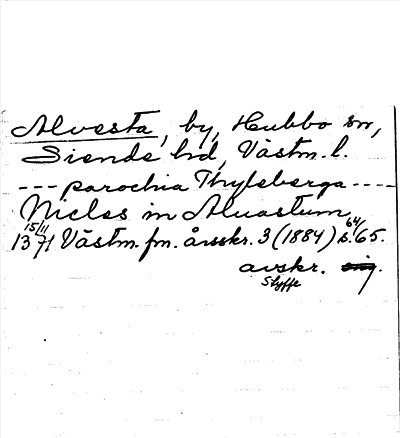 Alvesta, by, Hubbo sn,
Siende hd, Västm. l.
--- parochia Thylsberga ----
Niclos in Aluastum
15/11 1371 Västm. fm. årsskr. 3 (1884) s. 64/65.
avskr. orig.
Styffe